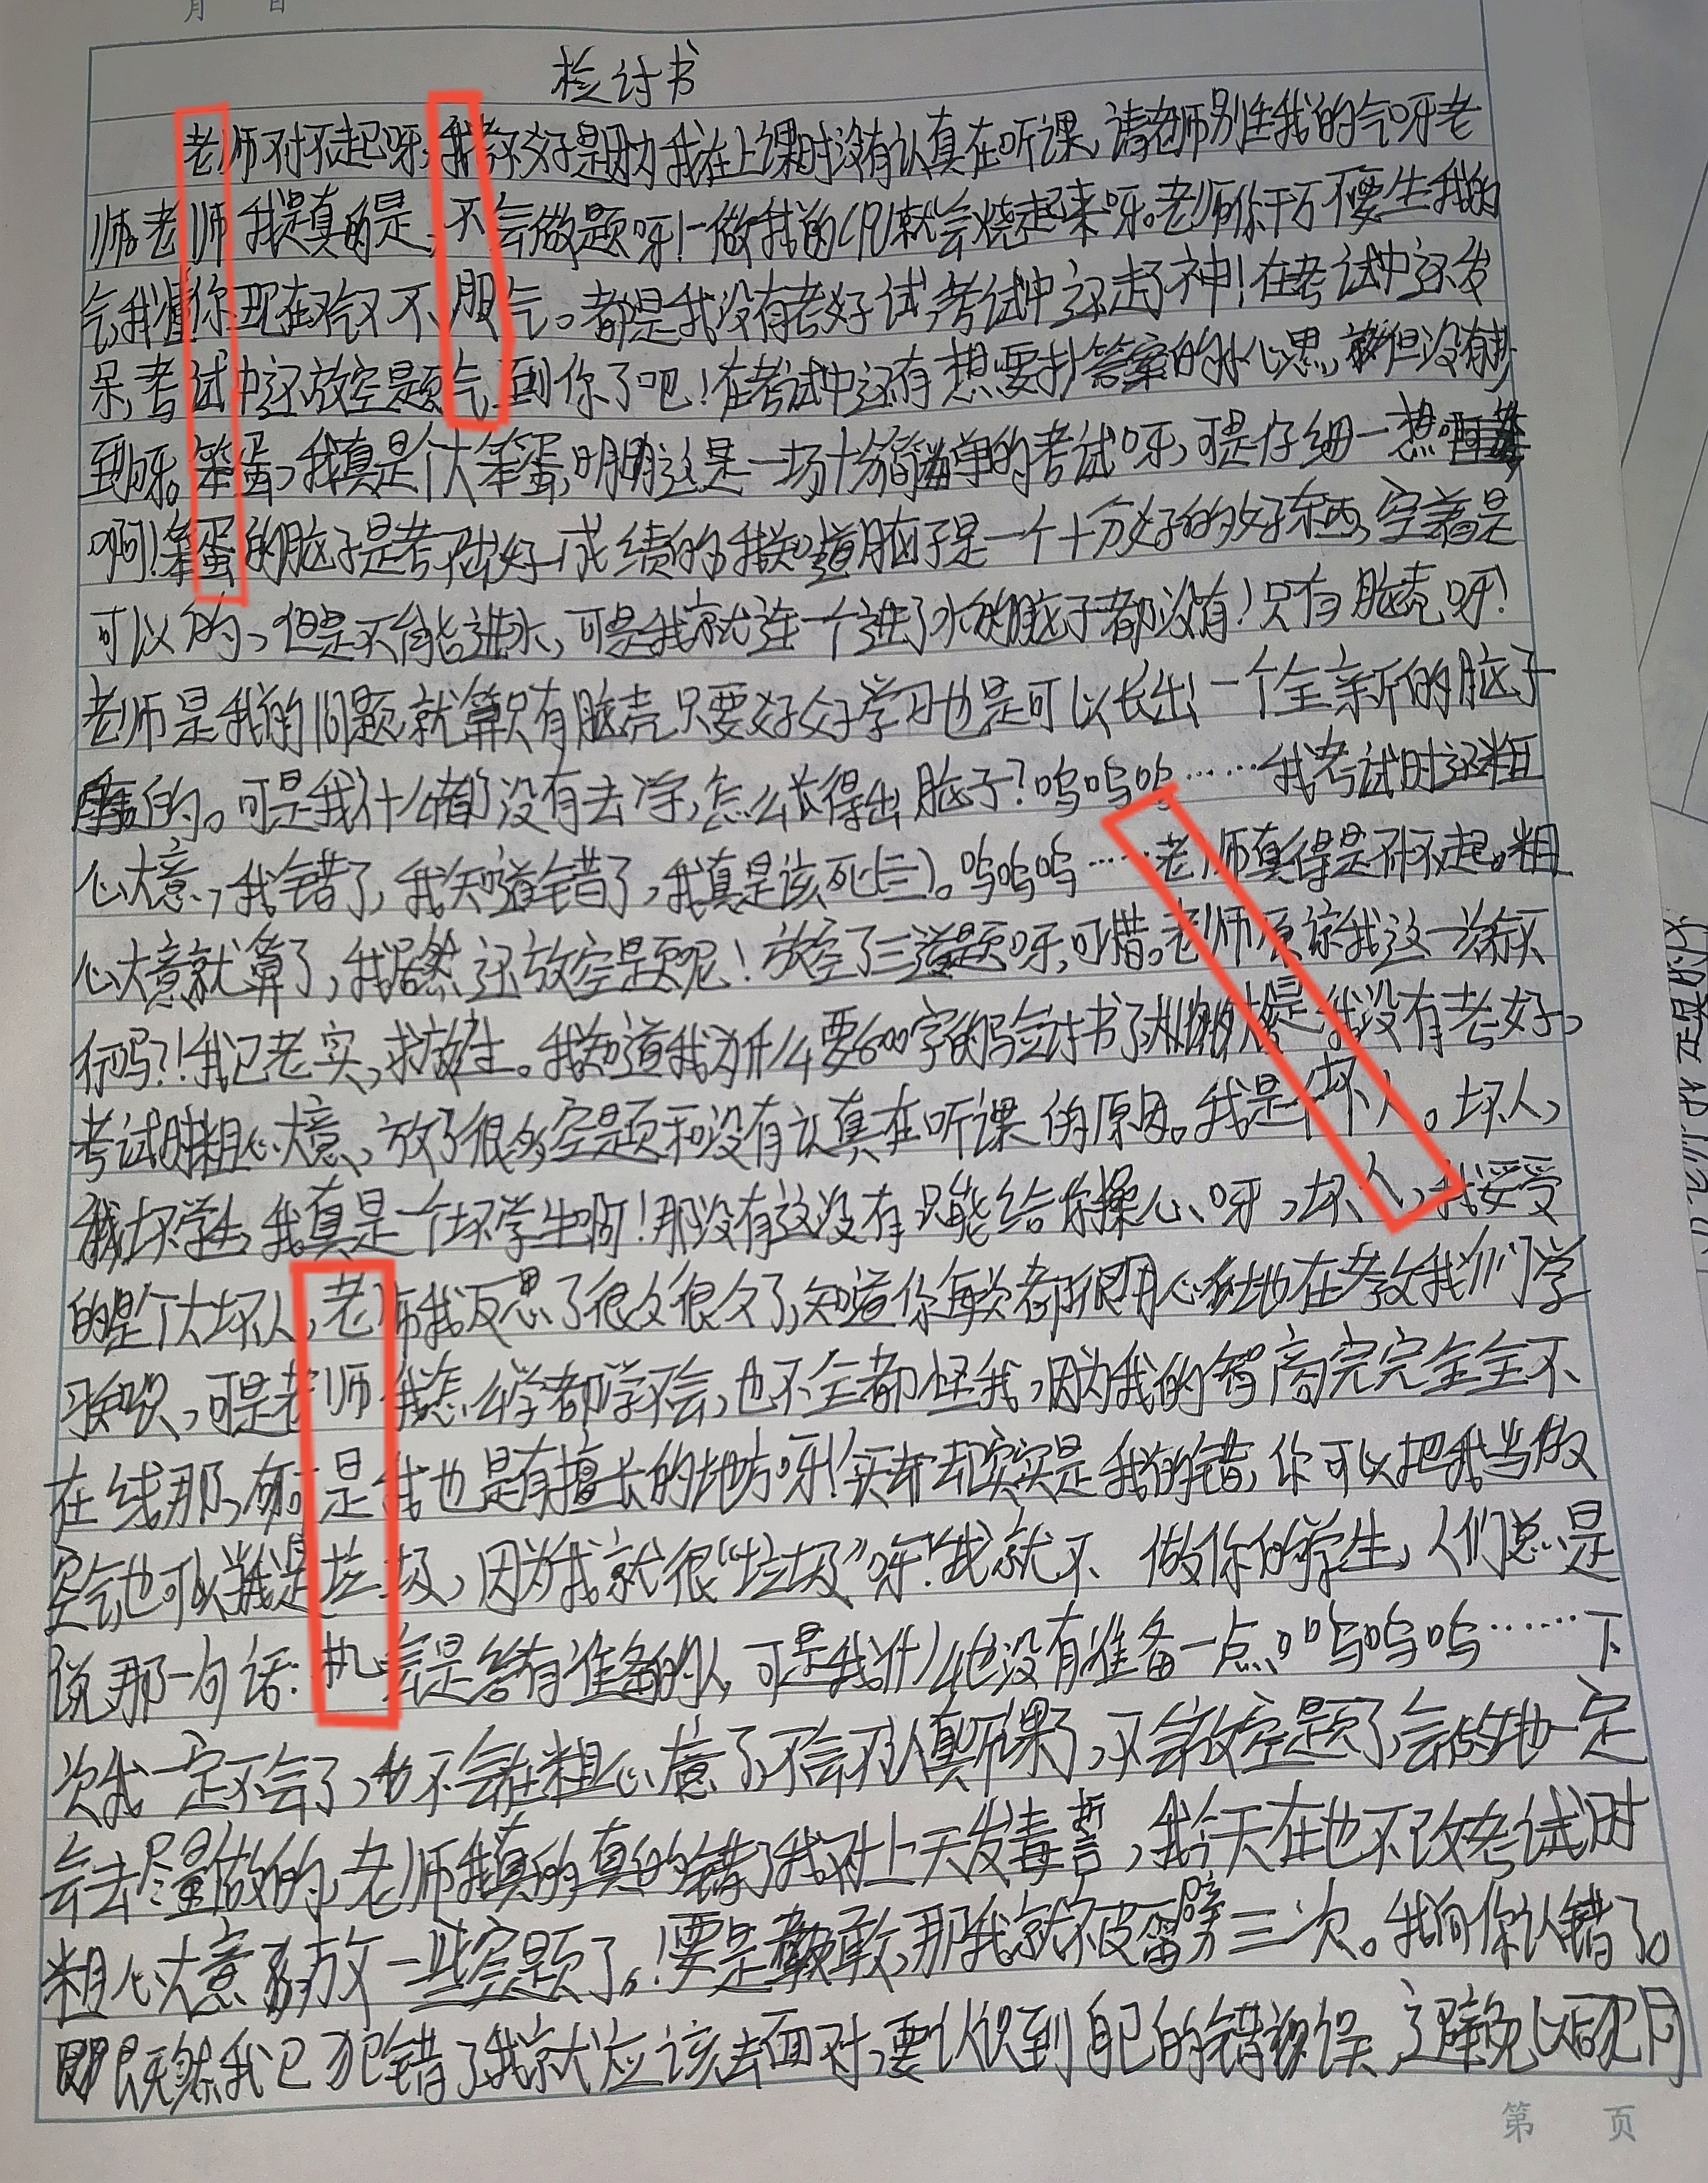 月 日
检讨书
老师对不起呀,我考不好是因为我在上课时没有认真在听课,请老师别生我的气呀老
师。老师我是真的是,不会做题呀!一做我的CPU就会烧起来呀。老师你千万不要生我的
气,我懂你现在又气又不服气。都是我没有考好试,考试中还走了神!在考试中还发
呆,考试中还放空题气到你了吧!在考试中还有想要抄答案的小心思,但没有抄
到呀。笨蛋,我真是个大笨蛋,明明这是一场十分简单的考试呀,可是仔细一想
啊!笨蛋的脑子是考不出好成绩的,我知道脑子是一个十分好的好东西,空着是
可以的,但是不能进水,可是我就连一个进了水的脑子都没有!只有脑壳呀!
老师是我的问题,就算只有脑壳只要好好学习也是可以长出一个全新的脑子
的。可是我什么都没有去学,怎么长得出脑子?呜呜呜……我考试时还粗
心大意,我错了,我知道错了,我真是该死(三)。呜呜呜……老师真得是对不起。粗
心大意就算了,我居然还放空题呢!放空了三道题呀,可惜。老师原谅我这一次好不
行吗?!我已老实,求放生。我知道我为什么要600字的写检讨书了,是我没有考好,
考试时粗心大意,放了很多空题和没有认真在听课的原因。我是个坏人。坏人,
我坏学生,我真是一个坏学生啊!那没有这没有只能给你操心呀,坏人,我妥妥
的是个大坏人,老师我反思了很久很久了,知道你每次都很用心地在教我们学
习知识,可是老师我怎么学都学不会,也不全都怪我,因为我的智商完完全全不
在线那,可是我也是有擅长的地方呀!实却却实实是我的错,你可以把我当做
空气,也可以当我是垃圾,因为我就很“垃圾”呀!我就不 做你的学生,人们总是
说那一句话:机会是给有准备的人,可是我什么也没有准备一点。呜呜呜……下
次我一定不会了,也不会在粗心大意了,不会不认真听课了,不会放空题了,会的地一定
会去尽量做的,老师我真的真的错了我对上天发毒誓,我今天在也不改考试时
粗心大意了,放一些空题了。!要是敢,那我就不被雷劈三次。我向你认错了。
既然我已犯错了我就应该去面对,要认识到自己的错误,避免以后犯同
第 页